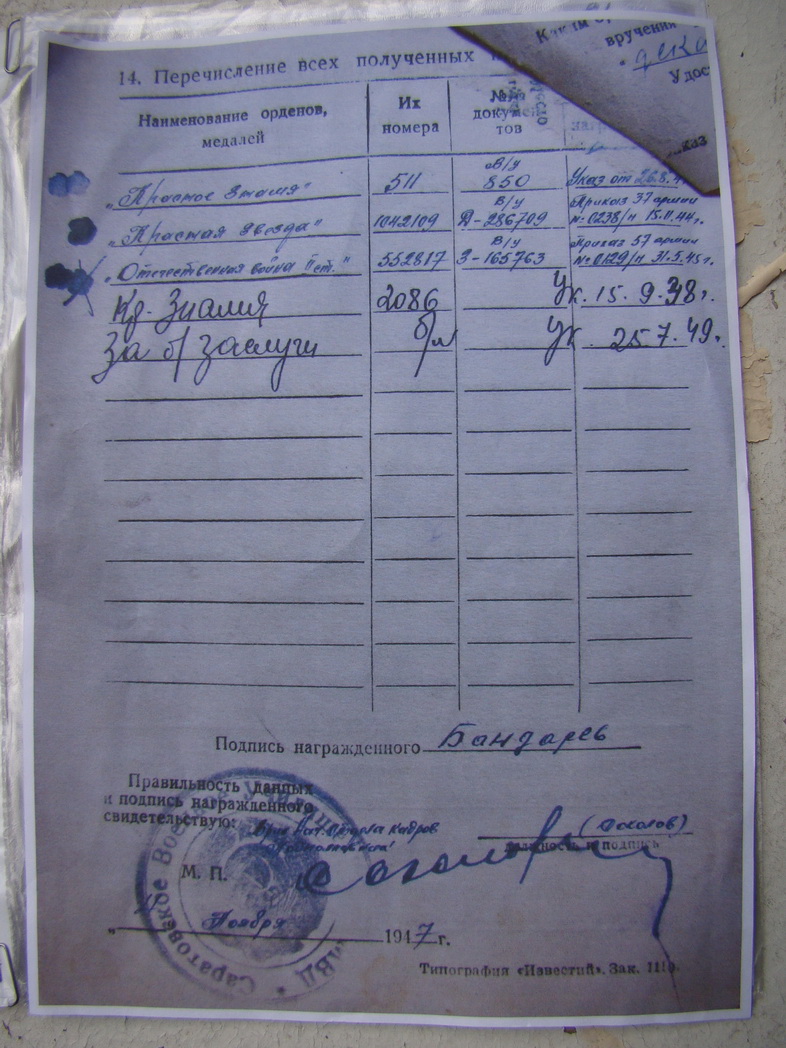 14. Перечисление всех полученных
Каким
вручении
Удос
каз
Наименование орденов,
медалей
Их
номера
докумен
тов
„Красное Знамя"
511
В/у
850
Указ от 26.8.4
„Красная Звезда"
1042109
В/у
Д-286709
Приказ 37 армии
№ 0238/н 15.11.44г.
„Отечественная война II ст."
552817
В/у
З-165763
Приказ 57 армии
№ 0129/н 31.5.45г.
Кр. Знамя
2086
Ук. 15.9.48г.
За б/заслуги
б/н
Ук. 25.7.49г.
Подпись награжденного Бандарев
Правильность данных
и подпись награжденного
свидетельствую:
Нач. отдела кадров
(Соколов)
должность и подпись
М. П.
Ноября 1947 г.
Саратовское Военное Училище МВД
Типография «Известий». Зак.